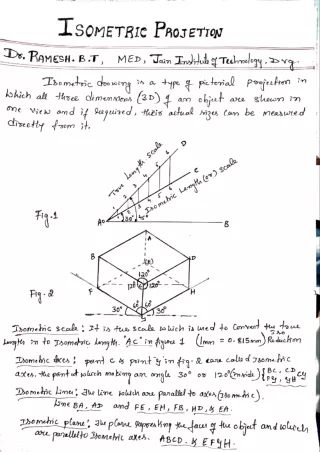 ISOMETRIC PROJETION
Dr. RAMESH. B.T, MED, Jain Institute of Technology, Dvg.
Isometric drawing is a type of pictorial projection in
which all three dimensions (3D) of an object are shown in
one view and if required, their actual sizes can be measured
directly from it.
True Length Scale
D
C
Isometric Length (or) scale
Fig.1
A
30°
45°
B
A
B
D
120°
120
120
C
F
H
Fig. 2
30°
30°
Isometric scale: It is the scale which is used to convert the true
length in to Isometric length. AC in figure 1 (1mm = 0.815mm) Reduction
Isometric axes: point C is point y in fig-2 are called Isometric
axes. the point at which making an angle 30° or 120° (inside) BC, CD, CY
Isometric lines: The line which are parallel to axes (isometric).
Line BA, AD and FE, EH, FB, HD, & EA.
Isometric plane: The plane representing the faces of the object and which
are parallel to Isometric axes. ABCD, & EFYH.